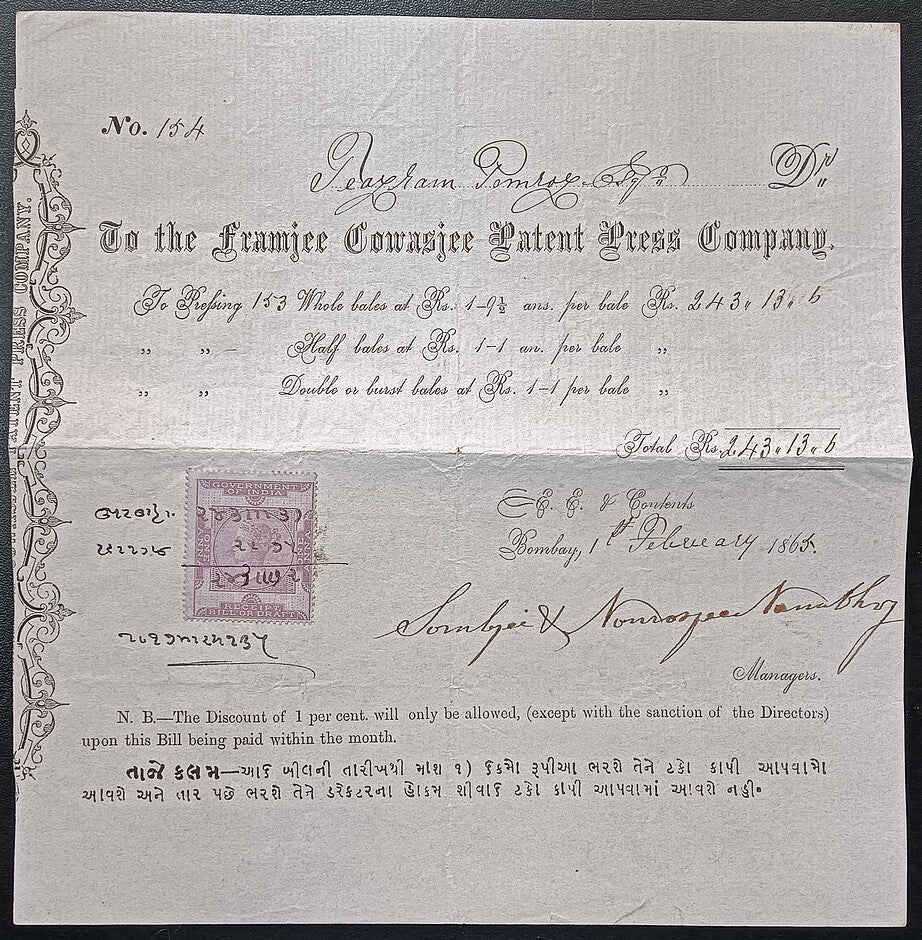 No. 154
Dr
To the Framjee Cowasjee Patent Press Company.
To Pressing 153 Whole bales at Rs. 1-9½ ans. per bale Rs. 243 " 13 " 6
" " – Half bales at Rs. 1-1 an. per bale "
" " Double or burst bales at Rs. 1-1 per bale "
Total Rs. 243 " 13 " 6
GOVERNMENT
OF INDIA
ONE
ANNA
RECEIPT
BILL OR DRAFT
E. E. & Contents
Bombay, 1st February 1865.
Sorabjee & Nowrosjee Nanabhoy
Managers.
N. B.—The Discount of 1 per cent. will only be allowed, (except with the sanction of the Directors)
upon this Bill being paid within the month.
તાજે કલમ—આઈ બીલની તારીખથી માશ ૧) ઈકમો રૂપીઆ ભરશે તેને ટકો કાપી આપવામો
આવશે અને તાર પછે ભરશે તેને ડરેકટરના હોકમ શીવાઈ ટકો કાપી આપવામાં આવશે નહી.
PATENT PRESS COMPANY.